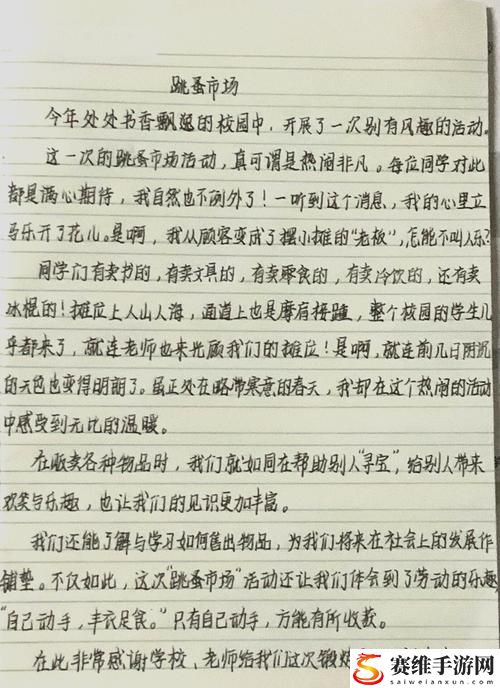 跳蚤市场
今年处处书香飘逸的校园中，开展了一次别有风趣的活动。
这一次的跳蚤市场活动，真可谓是热闹非凡。每位同学对此
都是满心期待，我自然也不例外了！一听到这个消息，我的心里立
马乐开了花儿。是啊，我从顾客变成了摆小摊的“老板”，怎能不叫人乐？
同学们有卖书的，有卖文具的，有卖零食的，有卖冷饮的，还有卖
冰棍的！摊位上人山人海，通道上也是摩肩接踵，整个校园的学生几
乎都来了，就连老师也来光顾我们的摊位！是啊，就连前几日阴沉
的天色也变得明朗了。虽正处在略带寒意的春天，我却在这个热闹的活动
中感受到无比的温暖。
在贩卖各种物品时，我们就如同在帮助别人“寻宝”，给别人带来
欢笑与乐趣，也让我们的见识更加丰富。
我们还能了解与学习如何售出物品，为我们将来在社会上的发展作
铺垫。不仅如此，这次“跳蚤市场”活动还让我们体会到了劳动的乐趣
“自己动手，丰衣足食。”只有自己动手，方能有所收获。
在此非常感谢学校、老师给我们这次锻炼
赛维手游网
saiweianxun.com